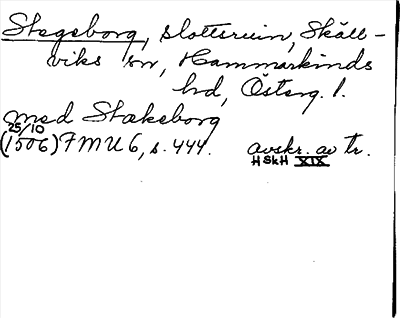 Stegeborg, slottsruin, Skäll-
viks sn, Hammarkinds
hd, Österg. l.
med Stækeborg
25/10
(1506) FMU 6, s. 444. avskr. av tr.
HSkH XIX